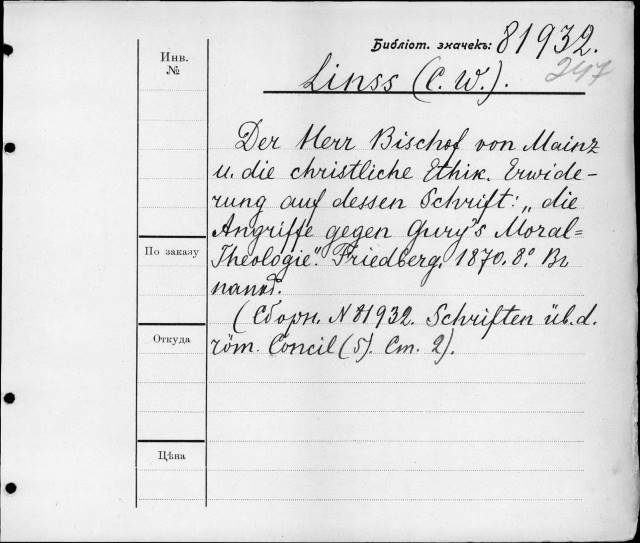 Библіот. значекъ: 81932.
247
Инв.
№
Linss (C. W.).
Der Herr Bischof von Mainz
u. die christliche Ethik. Erwide-
rung auf dessen Schrift: „die
Angriffe gegen Gury's Moral=
Theologie". Friedberg, 1870. 8°. Въ
папкѣ.
(Сборн. N 81932. Schriften üb. d.
röm. Concil (5). Ст. 2).
По заказу
Откуда
Цѣна